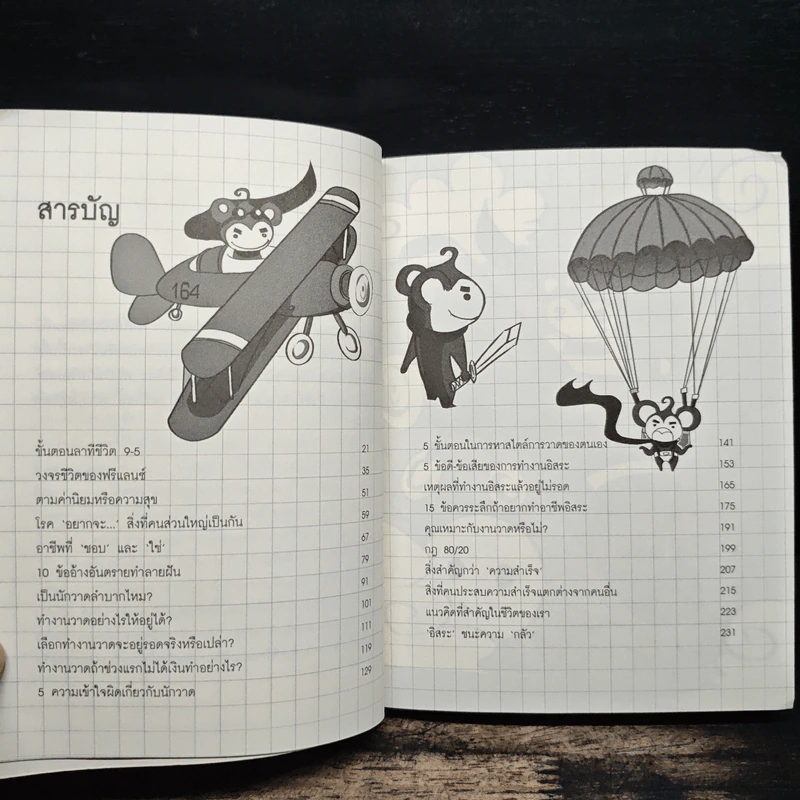 สารบัญ
164
ขั้นตอนลาทีชีวิต 9-5 21
วงจรชีวิตของฟรีแลนซ์ 35
ตามค่านิยมหรือความสุข 51
โรค 'อยากจะ...' สิ่งที่คนส่วนใหญ่เป็นกัน 59
อาชีพที่ 'ชอบ' และ 'ใช่' 67
10 ข้ออ้างอันตรายทำลายฝัน 79
เป็นนักวาดลำบากไหม? 91
ทำงานวาดอย่างไรให้อยู่ได้? 101
เลือกทำงานวาดจะอยู่รอดจริงหรือเปล่า? 111
ทำงานวาดถ้าช่วงแรกไม่ได้เงินทำอย่างไร? 119
5 ความเข้าใจผิดเกี่ยวกับนักวาด 129
5 ขั้นตอนในการหาสไตล์การวาดของตนเอง 141
5 ข้อดี-ข้อเสียของการทำงานอิสระ 153
เหตุผลที่ทำงานอิสระแล้วอยู่ไม่รอด 165
15 ข้อควรระลึกถ้าอยากทำอาชีพอิสระ 175
คุณเหมาะกับงานวาดหรือไม่? 191
กฎ 80/20 199
สิ่งสำคัญกว่า 'ความสำเร็จ' 207
สิ่งที่คนประสบความสำเร็จแตกต่างจากคนอื่น 215
แนวคิดที่สำคัญในชีวิตของเรา 223
'อิสระ' ชนะความ 'กลัว' 231